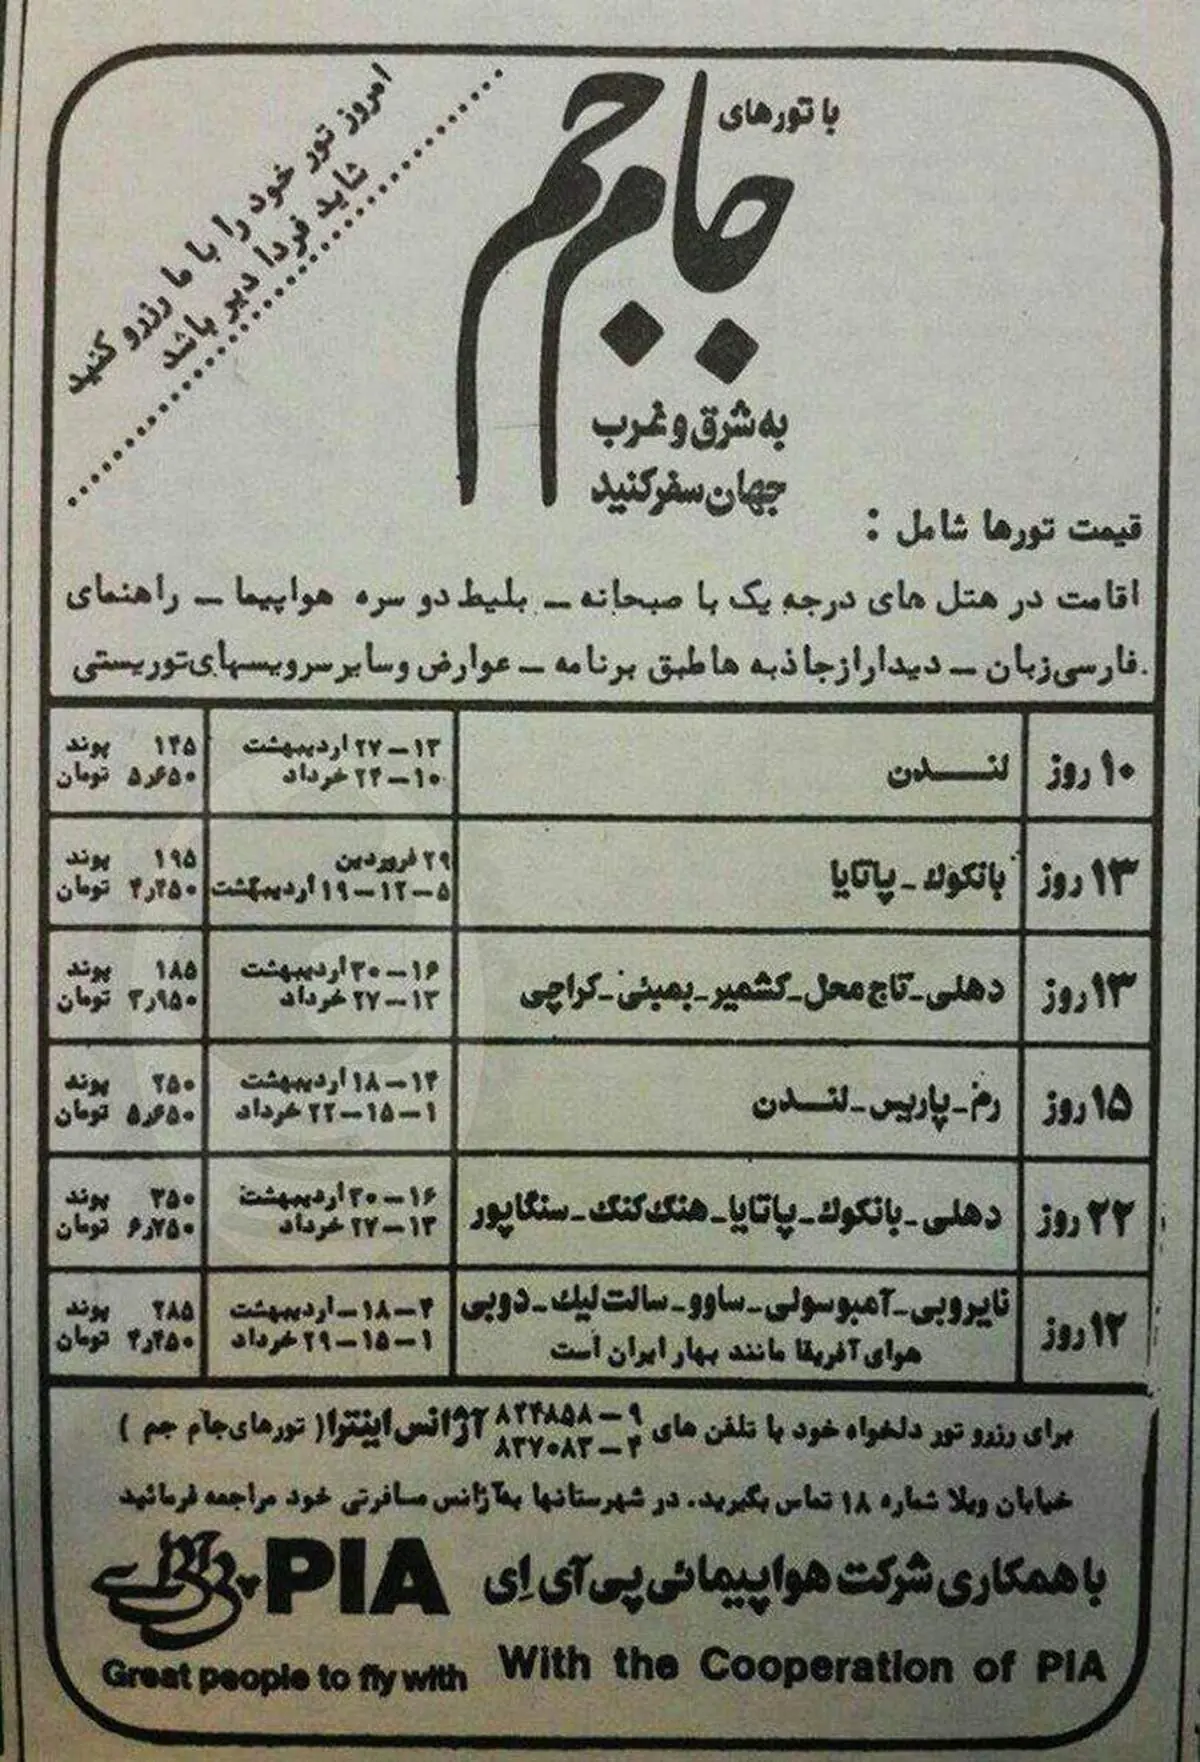 با تورهای
جام جم
به شرق و غرب
جهان سفر کنید
امروز تور خود را با ما رزرو کنید
شاید فردا دیر باشد
قیمت تورها شامل :
اقامت در هتل های درجه یک با صبحانه ـ بلیط دو سره هواپیما ـ راهنمای
فارسی زبان ـ دیدار از جاذبه ها طبق برنامه ـ عوارض و سایر سرویسهای توریستی.
۱۰ روز لنـــدن ۱۳ – ۲۷ اردیبهشت ۱۴۵ پوند
۱۰ – ۲۴ خرداد ۵ر۶۵۰ تومان
۱۳ روز بانکوک ـ پاتایا ۲۹ فروردین ۱۹۵ پوند
۵ – ۱۲ – ۱۹ اردیبهشت ۴ر۲۵۰ تومان
۱۳ روز دهلی ـ تاج محل ـ کشمیر ـ بمبئی ـ کراچی ۱۶ – ۳۰ اردیبهشت ۱۸۵ پوند
۱۳ – ۲۷ خرداد ۳ر۹۵۰ تومان
۱۵ روز رم ـ پاریس ـ لنـدن ۱۴ – ۱۸ اردیبهشت ۲۵۰ پوند
۱ – ۱۵ – ۲۲ خرداد ۵ر۶۵۰ تومان
۲۲ روز دهلی ـ بانکوک ـ پاتایا ـ هنگ کنگ ـ سنگاپور ۱۶ – ۳۰ اردیبهشت ۳۵۰ پوند
۱۳ – ۲۷ خرداد ۶ر۷۵۰ تومان
۱۲ روز نایروبی ـ آمبوسولی ـ ساوو ـ سالت لیک ـ دوبی ۴ – ۱۸ – اردیبهشت ۲۸۵ پوند
هوای آفریقا مانند بهار ایران است ۱ – ۱۵ – ۲۹ خرداد ۴ر۴۵۰ تومان
برای رزرو تور دلخواه خود با تلفن های ۹ – ۸۲۴۸۵۸ آژانس اینترا ( تورهای جام جم )
۴ – ۸۳۷۰۸۳
خیابان ویلا شماره ۱۸ تماس بگیرید. در شهرستانها به آژانس مسافرتی خود مراجعه فرمائید
با همکاری شرکت هواپیمائی پی آی اِی PIA پی آئی اے
With the Cooperation of PIA
Great people to fly with